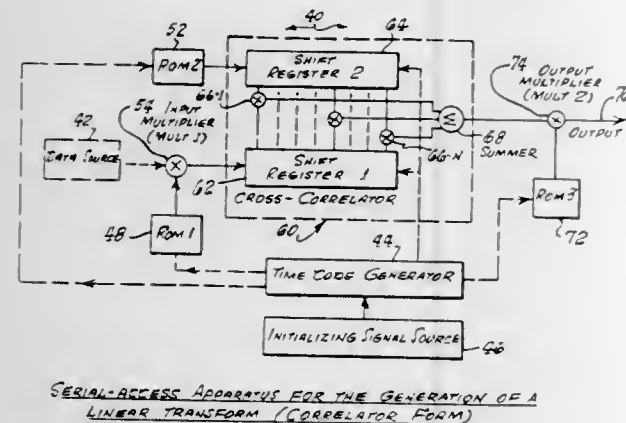 40
52
64
ROM 2
SHIFT
REGISTER 2
74
OUTPUT
MULTIPLIER
(MULT 2)
54
INPUT
MULTIPLIER
(MULT 1)
66-1
42
DATA SOURCE
Σ
OUTPUT
68
SUMMER
66-N
SHIFT
REGISTER 1
62
CROSS-CORRELATOR
ROM 3
72
48
ROM 1
60
44
TIME CODE GENERATOR
INITIALIZING SIGNAL SOURCE
46
SERIAL-ACCESS APPARATUS FOR THE GENERATION OF A
LINEAR TRANSFORM (CORRELATOR FORM)